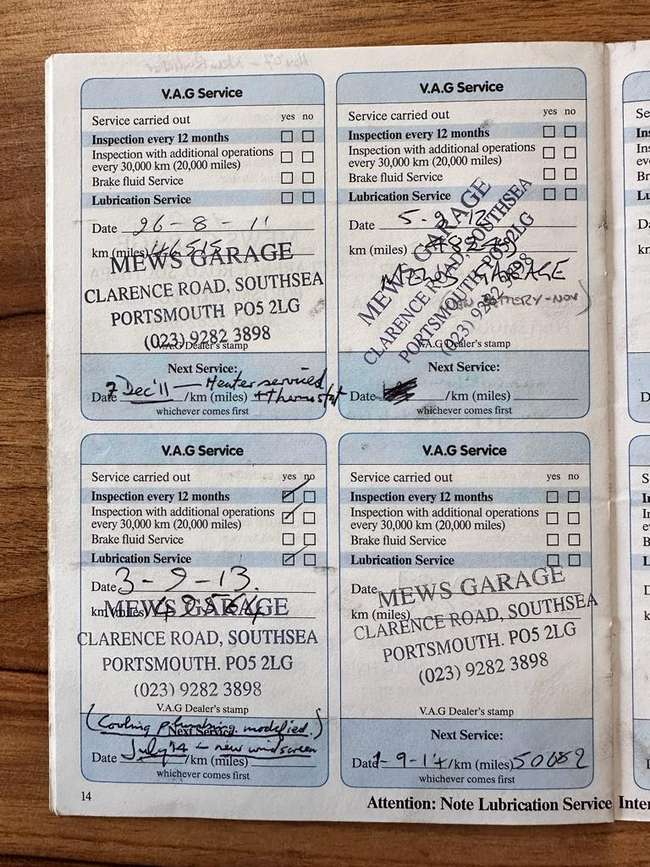 V.A.G Service
Service carried out yes no
Inspection every 12 months
Inspection with additional operations
every 30,000 km (20,000 miles)
Brake fluid Service
Lubrication Service
Date 26-8-11
km (miles)
MEWS GARAGE
CLARENCE ROAD, SOUTHSEA
PORTSMOUTH PO5 2LG
(023) 9282 3898
V.A.G Dealer's stamp
Next Service:
7 Dec '11 — Heater serviced
Date /km (miles) + thermostat
whichever comes first
V.A.G Service
Service carried out yes no
Inspection every 12 months
Inspection with additional operations
every 30,000 km (20,000 miles)
Brake fluid Service
Lubrication Service
Date 5-9-12
km (miles)
MEWS GARAGE
MEWS GARAGE
CLARENCE ROAD, SOUTHSEA
PORTSMOUTH PO5 2LG
(023) 9282 3898
BATTERY-NOV)
V.A.G Dealer's stamp
Next Service:
Date /km (miles)
whichever comes first
V.A.G Service
Service carried out yes no
Inspection every 12 months
Inspection with additional operations
every 30,000 km (20,000 miles)
Brake fluid Service
Lubrication Service
Date 3-9-13.
km (miles)
MEWS GARAGE
CLARENCE ROAD, SOUTHSEA
PORTSMOUTH. PO5 2LG
(023) 9282 3898
V.A.G Dealer's stamp
(Cooling plumbing modified.)
Next Service:
July '14 – new windscreen
Date /km (miles)
whichever comes first
V.A.G Service
Service carried out yes no
Inspection every 12 months
Inspection with additional operations
every 30,000 km (20,000 miles)
Brake fluid Service
Lubrication Service
Date
km (miles)
MEWS GARAGE
CLARENCE ROAD, SOUTHSEA
PORTSMOUTH. PO5 2LG
(023) 9282 3898
V.A.G Dealer's stamp
Next Service:
Date 1-9-14 /km (miles) 50682
whichever comes first
14
Attention: Note Lubrication Service